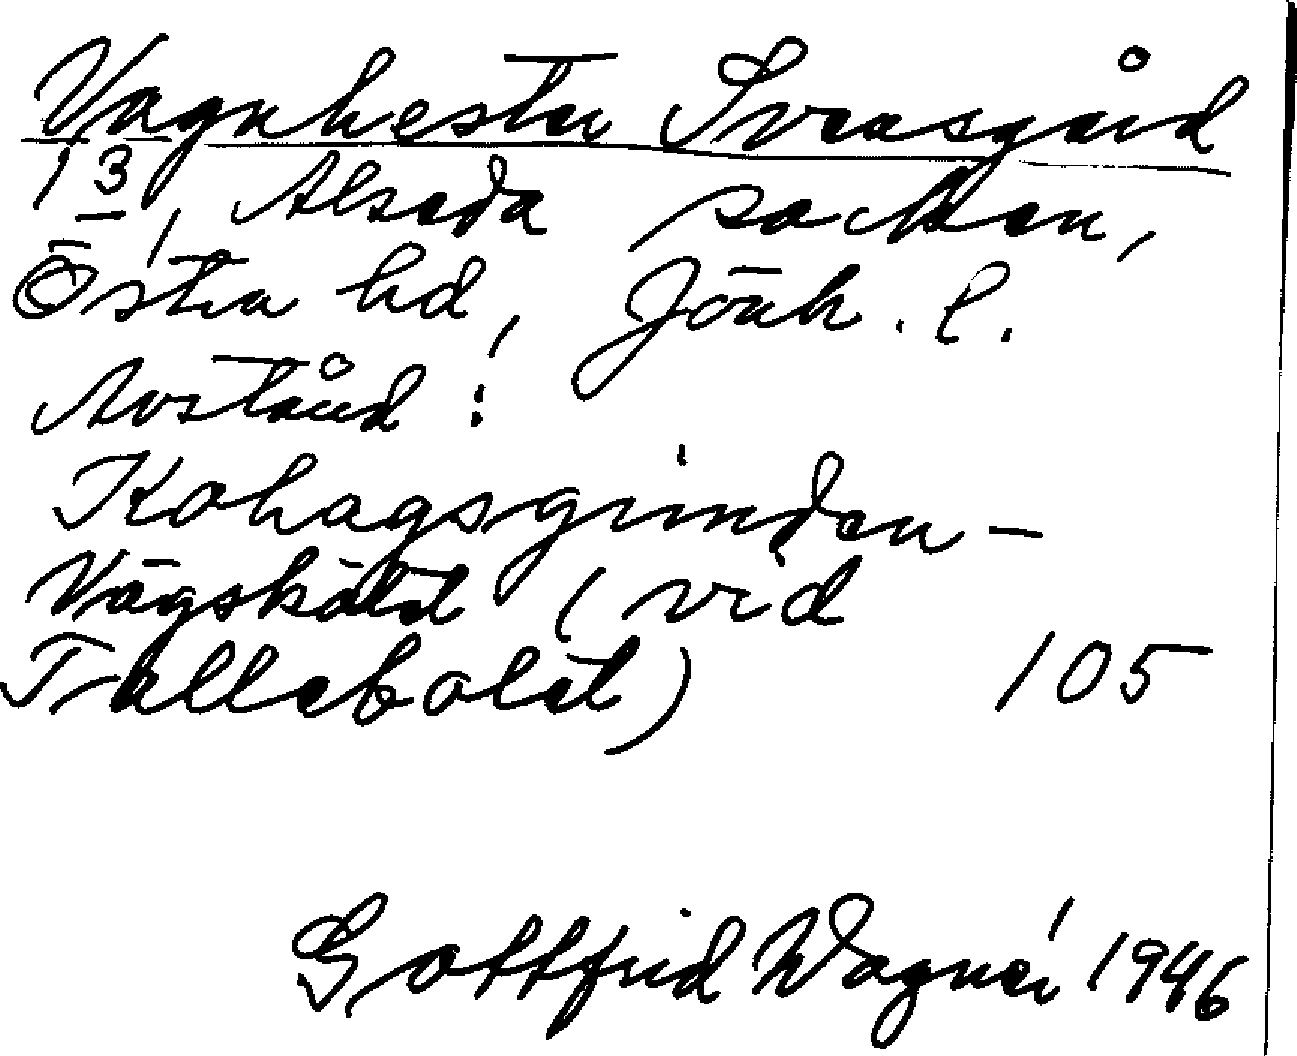 Vagnhester Sveasgård
1 3, Alseda socken,
Östra hd, Jönk. l.
Avstånd:
Kohagsgrinden –
Vägskälet (vid
Trallebolet) 105
Gottfrid Wagnér 1946